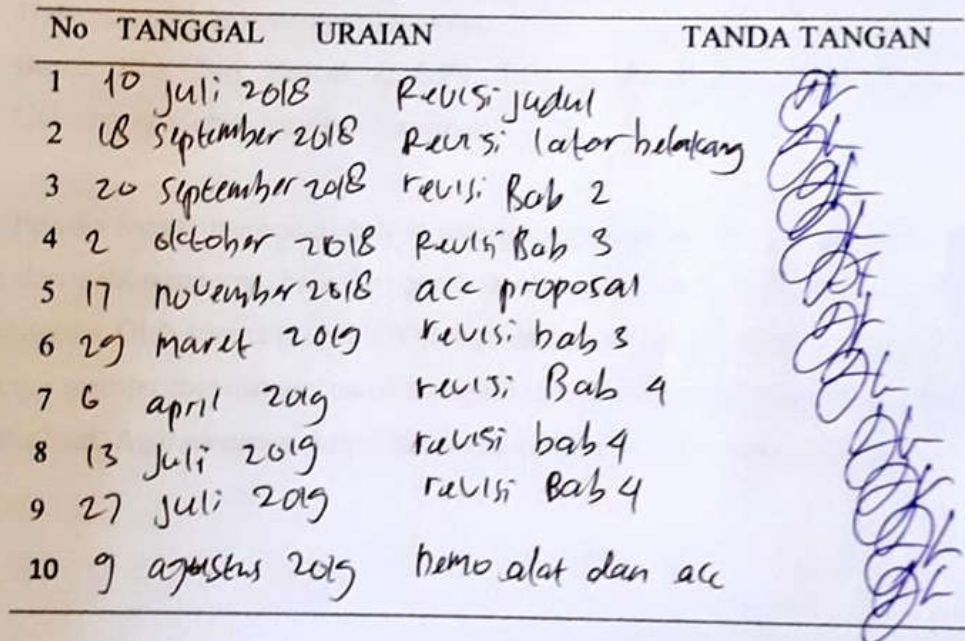 No TANGGAL URAIAN TANDA TANGAN
1 10 Juli 2018 Revisi judul
2 18 September 2018 Revisi lator belakang
3 20 September 2018 revisi Bab 2
4 2 oktober 2018 Revisi Bab 3
5 17 november 2018 acc proposal
6 29 maret 2019 revisi bab 3
7 6 april 2019 revisi Bab 4
8 13 Juli 2019 revisi bab 4
9 27 Juli 2019 revisi Bab 4
10 9 agustus 2019 Demo alat dan acc